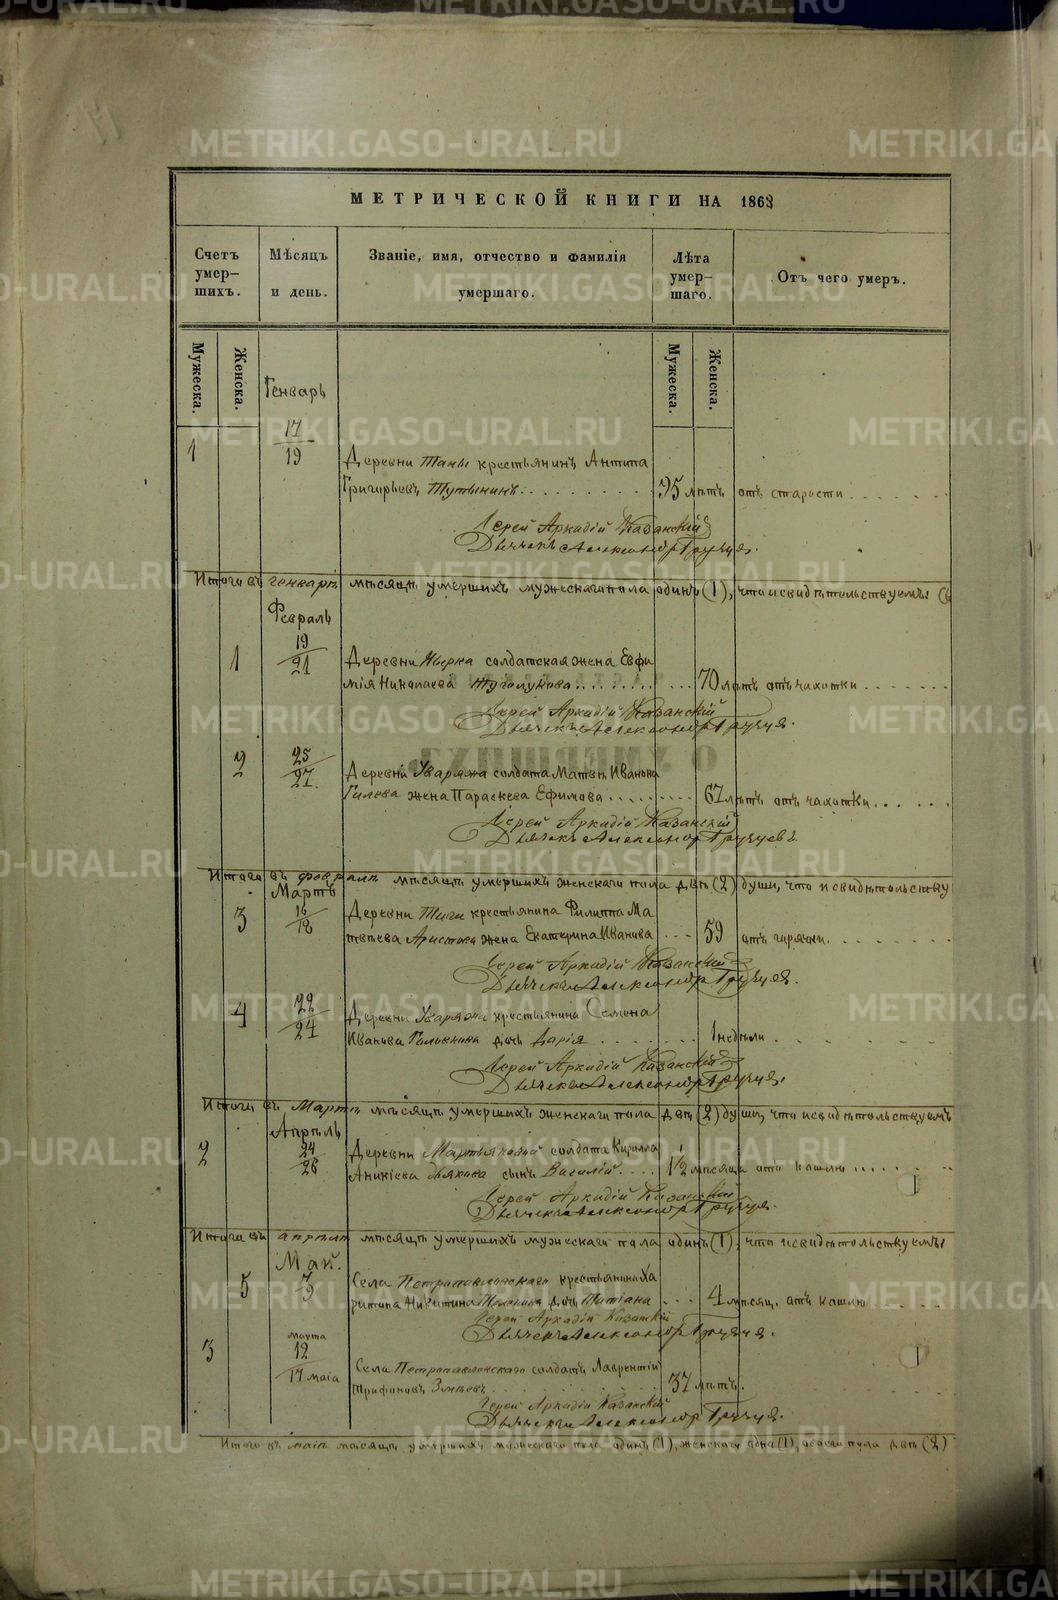 МЕТРИЧЕСКОЙ КНИГИ НА 1863
Счетъ умер-
шихъ.
Мѣсяцъ
и день.
Званіе, имя, отчество и фамилія
умершаго.
Лѣта
умер-
шаго.
Отъ чего умеръ.
Мужеска.
Женска.
Мужеска.
Женска.
Генварь
1 17/19
Деревни Таны крестьянинъ Антипа
Григорьевъ 95 лѣтъ отъ старости
Іерей Аркадій Казанскій
Дьячекъ Александръ
Итого въ генварѣ мѣсяцѣ умершихъ мужескаго пола одинъ (1), что и свидѣтельствуемъ:
Февраль
1 19/21 Деревни солдатская жена Евфи
мія Николаева 70 лѣтъ отъ чахотки
Іерей Аркадій Казанскій
Дьячекъ Александръ
2 25/27. Деревни Уваряжа солдата Матвѣя Иванова
Гилева жена Параскева Ефимова 67 лѣтъ отъ чахотки
Іерей Аркадій Казанскій
Дьячекъ Александръ
Итого въ февралѣ мѣсяцѣ умершихъ женскаго пола двѣ (2) души, что и свидѣтельству
Мартъ
3 16/18 Деревни крестьянина Филиппа Ма
твѣева жена Екатерина Иванова 59 отъ горячки
Іерей Аркадій Казанскій
Дьячекъ Александръ
4 22/24 Деревни Уваряжа крестьянина Семена
Иванова дочь Дарія 1 недѣли
Іерей Аркадій Казанскій
Дьячекъ Александръ
Итого въ Мартѣ мѣсяцѣ умершихъ женскаго пола двѣ (2) души, что и свидѣтельствуемъ
Апрѣль
2 24/26 Деревни солдата Кирилла
Аникіева сынъ Василій 1½ мѣсяца отъ кашлю
Іерей Аркадій Казанскій
Дьячекъ Александръ
Итого въ апрѣлѣ мѣсяцѣ умершихъ мужескаго пола одинъ (1), что и свидѣтельствуемъ:
Май.
5 7/9 Села Петропавловскаго крестьянина Ха
ритона Никитина дочь Татіана 4 мѣсяц. отъ кашлю
Іерей Аркадій Казанскій
Дьячекъ Александръ
3 марта 12/17 маія
Села Петропавловскаго солдатъ Лаврентій
Трифоновъ Змѣевъ 37 лѣтъ.
Іерей Аркадій Казанскій
Дьячекъ Александръ
Итого въ маіѣ мѣсяцѣ умершихъ мужескаго пола одинъ (1), женскаго одна (1), обоего пола двѣ (2)
METRIKI.GASO-URAL.RU